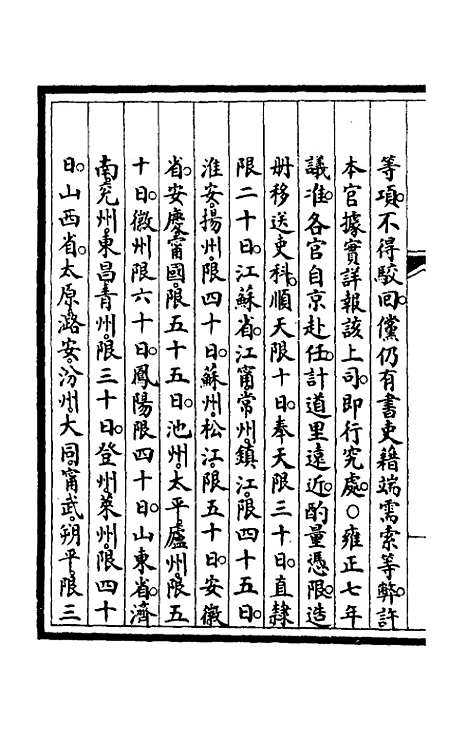 等項。不得駮回。儻仍有書吏藉端需索等弊。許
本官據實詳報該上司。即行究處。○雍正七年
議准。各官自京赴任。計道里遠近。酌量憑限。造
册移送吏科。順天限十日。奉天限三十日。直隸
限二十日。江蘇省。江甯。常州。鎮江。限四十五日。
淮安。揚州。限四十日。蘇州。松江。限五十日。安徽
省。安慶。甯國。限五十五日。池州。太平。廬州。限五
十日。徽州限六十日。鳳陽限四十日。山東省。濟
南。兗州。東昌。青州。限三十日。登州。萊州。限四十
日。山西省。太原。潞安。汾州。大同。甯武。朔平。限三